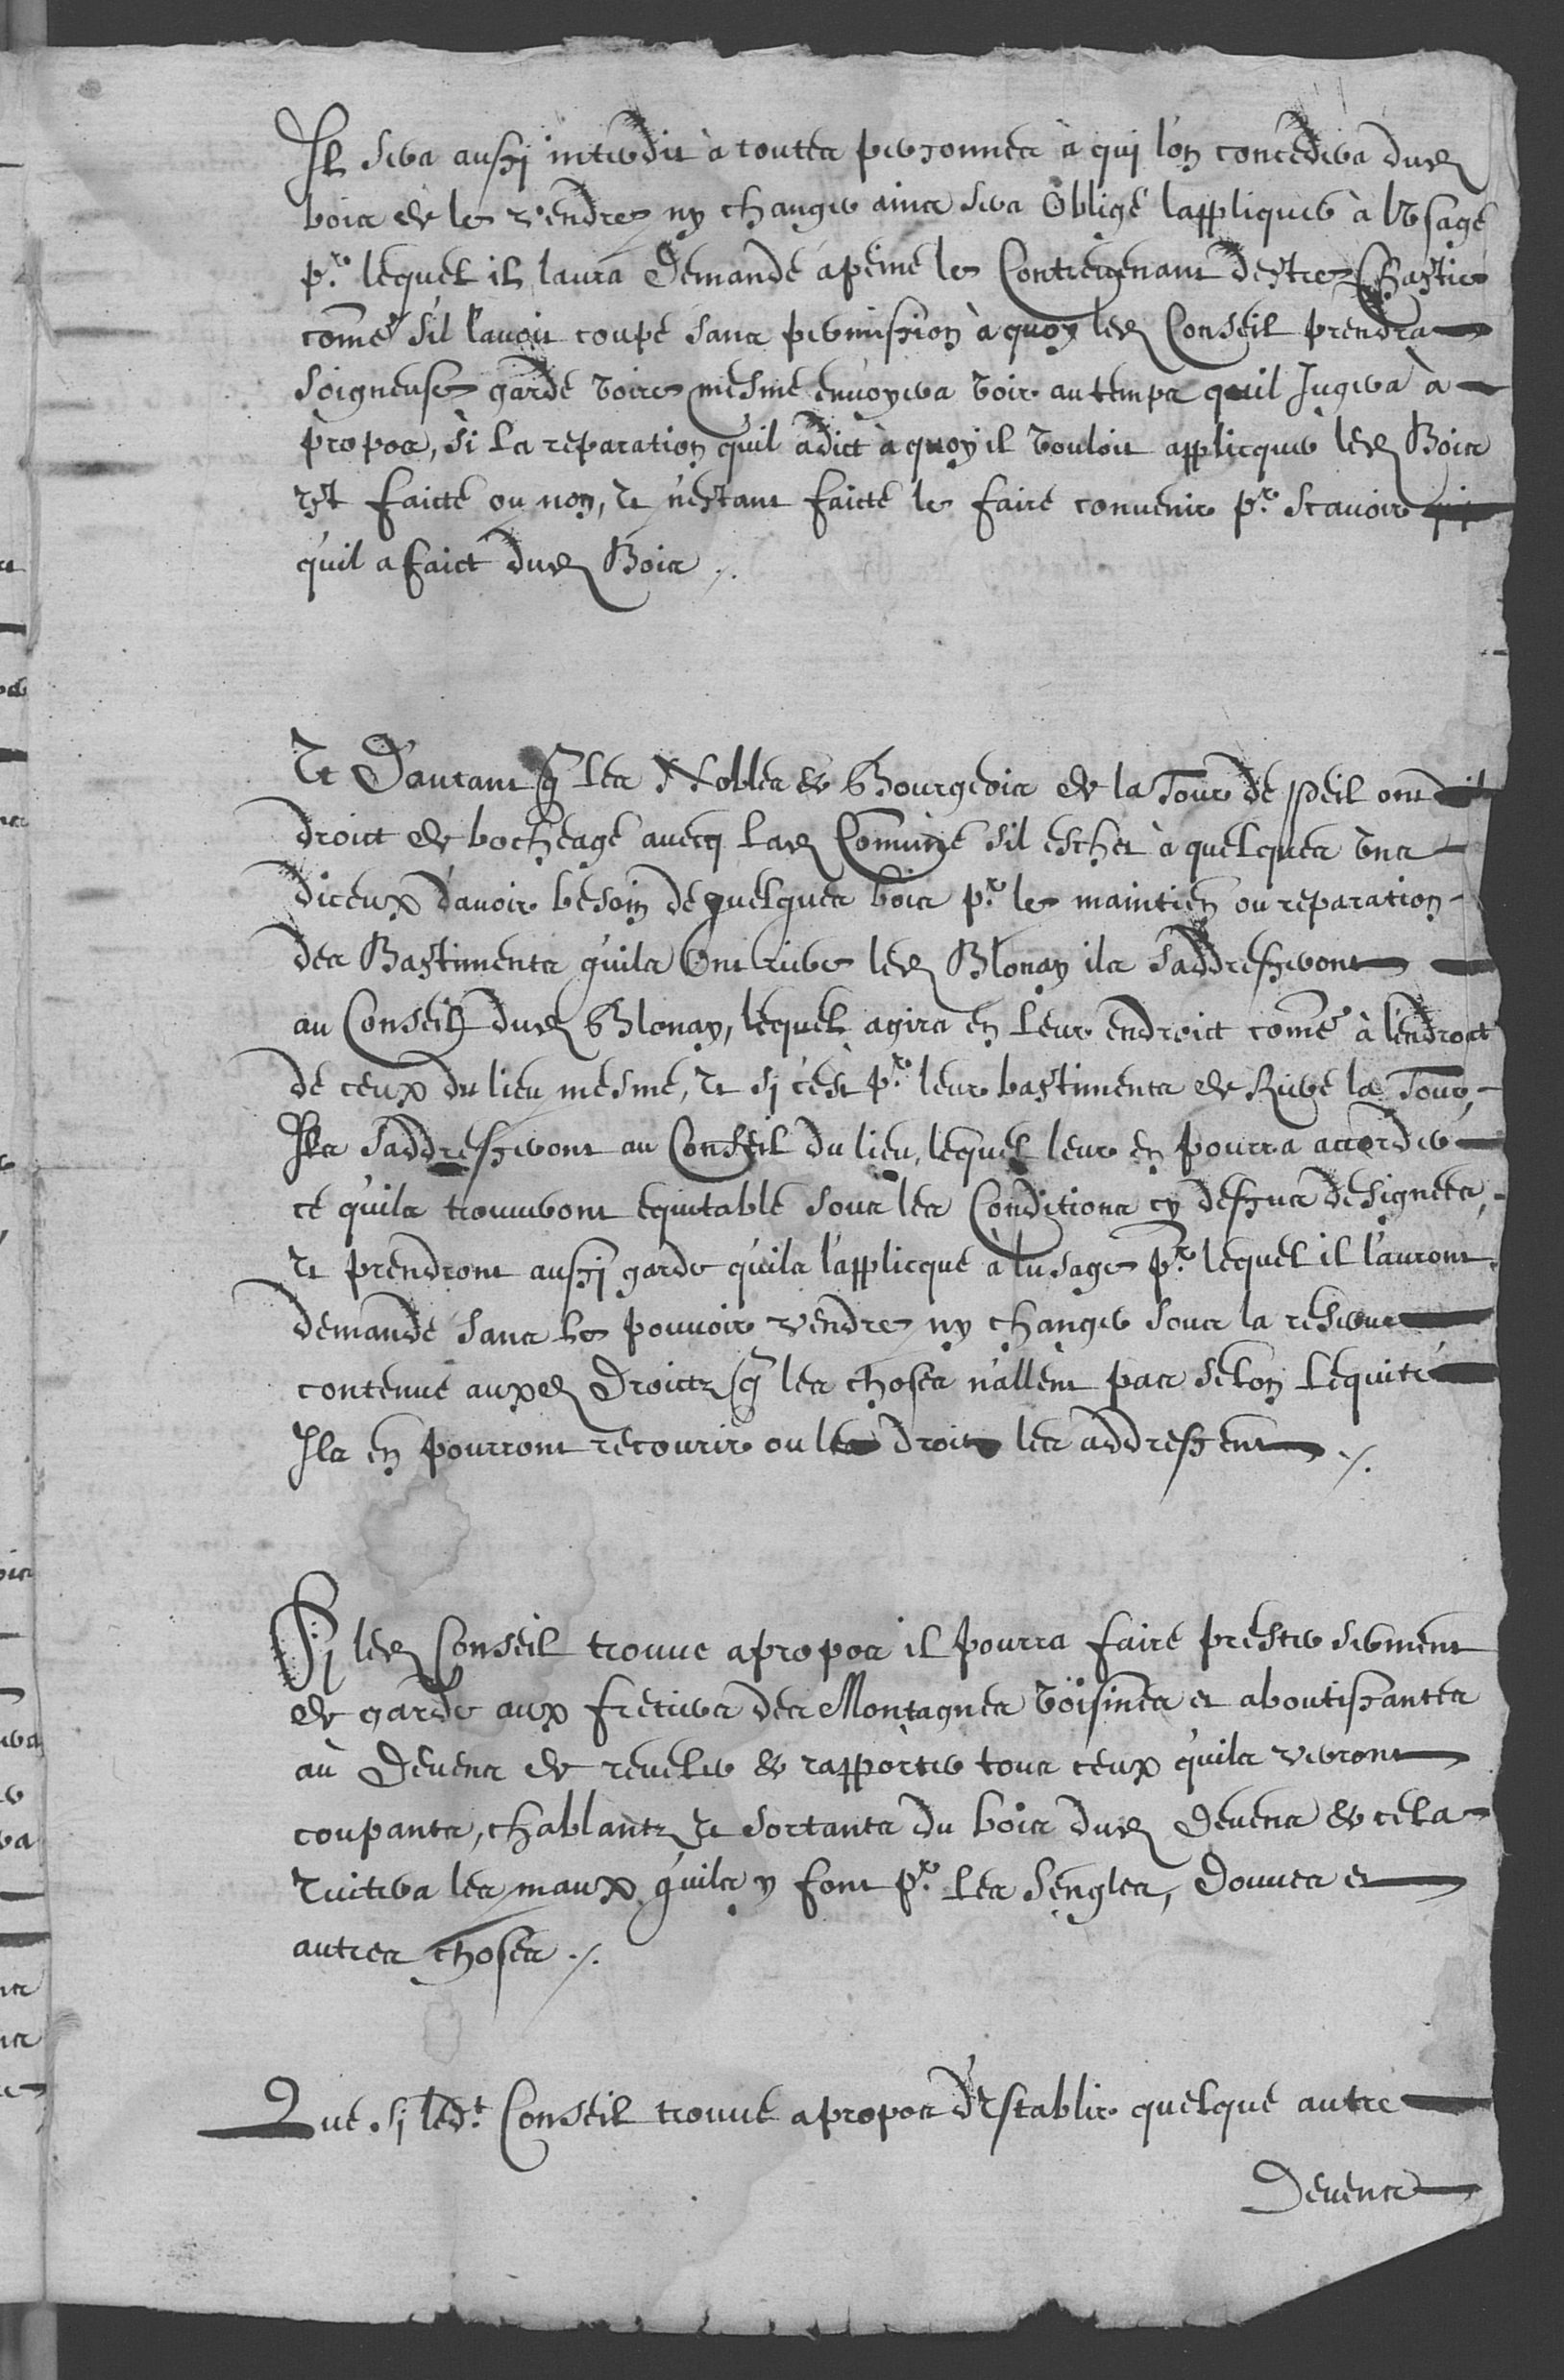 Il sera aussj interdit à toutes personnes à quj l'on concedera dud
bois de le vendre ny changer ains sera Obligé lappliquer à l'Vsage
pr. lequel il laura Demandé apeine le Contreuenant destre Chastié
come s'il l'auoit coupé sans permission à quoy led Conseil prendra
soigneuse garde voire mesme enuoyera voir au temps quil Jugera à
propos, si La reparation quil a dict à quoy il vouloit applicquer led Bois
est faicte ou non, et n'estant faicte le faire conuenir pr. scauoir
qu'il a faict dud Bois ./.
Et D'autant q les Nobles & Bourgeois de la Tour de Peil ont
droict de bocheage auecq lad Comune s'il eschet à quelques vns
diceux d'auoir besoin de quelques bois pr. le maintien ou reparation
des Bastiments qu'ils Ont riere led Blonay ils s'addresseront
au Conseil dud Blonay, lequel agira en Leur endroict come à l'endroict
de ceux du lieu mesme, et sj c'est pr. leur bastiments de Riere la Tour,
Ils s'addresseront au Conseil du lieu, lequel leur en pourra accorder
ce qu'ils trouueront equitable sous les Conditions cy dessus designees,
et prendront aussj garde qu'ils l'applicque à lusage pr. lequel il l'auront
demandé sans le pouuoir vendre ny changer sous la reserue
contenue auxd Droicts q les choses n'allent pas selon Lequité
Ils en pourront recourir ou les droits les addressent ./.
Sj led Conseil trouue apropos il pourra faire prester serment
de garde aux fretiers des Montagnes voisines et aboutissantes
au Deuens de reueler & rapporter tous ceux qu'ils verront
coupants, chablants et sortants du bois dud Deuens & cela
euitera les maux qu'ils y font pr. Les sengles, Douues et
autres choses ./.
Que sj ledt. Conseil trouue apropos d'Establir quelque autre
Deuens